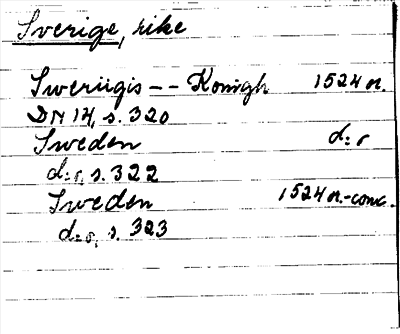 Sverige, rike
Sweriigis -- Konigh 1524 n.
DN 14, s. 320
Sweden d:o
d:o, s. 322
Sweden 1524 n.-conc.
d:o, s. 323